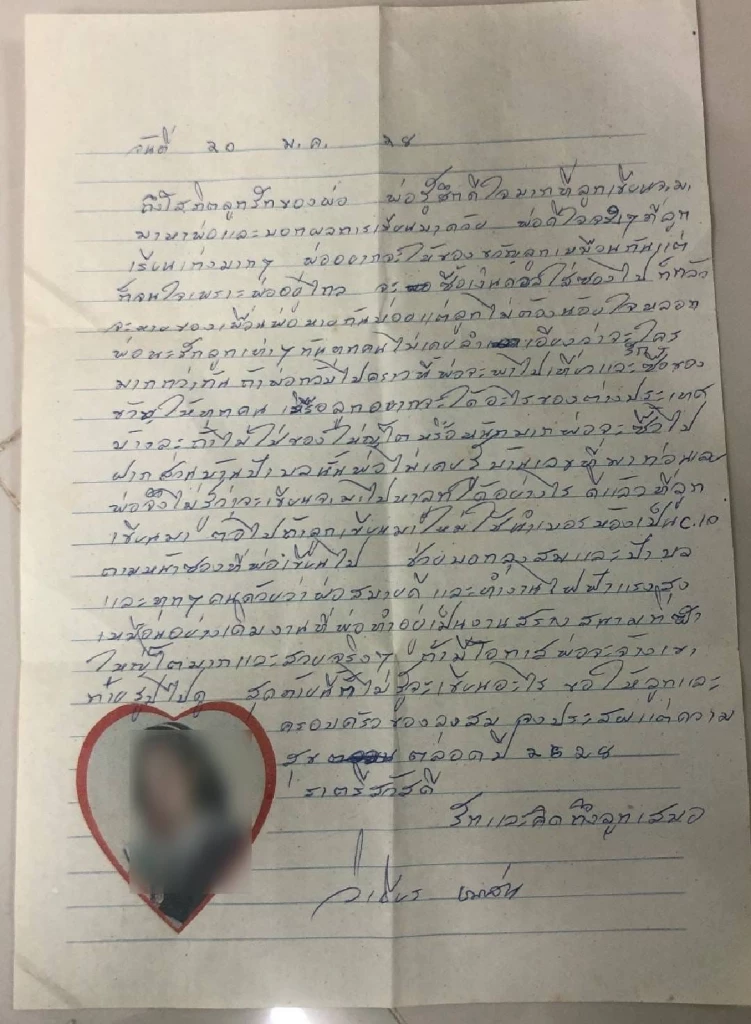 วันที่ ๒๐ ม.ค. ๒๘
ถึงโสภิตลูกรักของพ่อ พ่อรู้สึกดีใจมากที่ลูกเขียน จ.ม.
มาหาพ่อและบอกผลการเรียนมาด้วย พ่อดีใจจริงๆที่ลูก
เรียนเก่งมากๆ พ่ออยากจะให้ของขวัญลูกเหมือนกันแต่
ก็จนใจเพราะพ่ออยู่ไกล จะ ซื้อเงินดอลใส่ซองไป ก็กลัว
จะหายของเพื่อนพ่อหายกันบ่อยแต่ลูกไม่ต้องน้อยใจหลอก
พ่อจะรักลูกเท่าๆกันทุกคนไม่เคยลำเอียงว่าจะรักใคร
มากกว่ากัน ถ้าพ่อกลับไปคราวนี้พ่อจะพาไปเที่ยวและซื้อของ
ขวัญให้ทุกคน หรือลูกอยากจะได้อะไรของต่างประเทศ
บ้างละถ้าไม่ใช่ของใหญ่โตหรือหนักมากพ่อจะซื้อไป
ฝาก ส่วนบ้านป้าบลนั้นพ่อไม่เคยรู้บ้านเลขที่มาก่อนเลย
พ่อจึงไม่รู้ว่าจะเขียนจ.ม.ไปหาลูกได้อย่างไร ดีแล้วที่ลูก
เขียนมา ต่อไปถ้าลูกเขียนมาใหม่ใช้นำเบอรห้องเป็นC.10
ตามหน้าซองที่พ่อเขียนไป ช่วยบอกลุงสมและป้าบล
และทุกๆคนด้วยว่าพ่อสบายดี และทำงานไฟฟ้าแรงสูง
เหมือนอย่างเดิมงานที่พ่อทำอยู่เป็นงานสร้างสนามกีฬา
ใหญ่โตมากและสวยจริงๆ ถ้ามีโอกาสพ่อจะจ้างเขา
ถ่ายรูปไปดู สุดท้ายนี้ก็ไม่รู้จะเขียนอะไร ขอให้ลูกและ
ครอบครัวของลุงสม จงประสพแต่ความ
สุข ตลอดปี ๒๕๒๘
ราตรีสวัสดิ์
รักและคิดถึงลูกเสมอ
วิเชียร